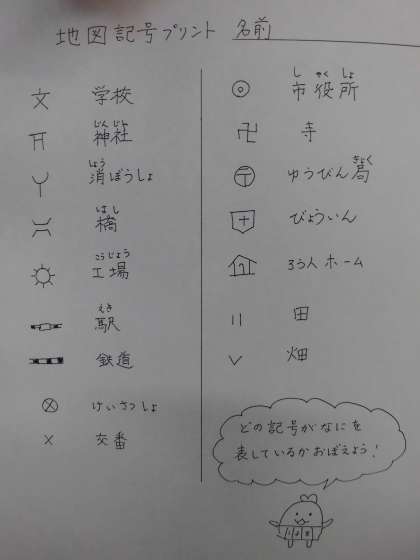 地図記号プリント 名前
文 学校
じんじゃ
神社
しょう
消ぼうしょ
はし
橋
こうじょう
工場
えき
駅
鉄道
けいさつしょ
交番
し やく しょ
市役所
卍 寺
きょく
ゆうびん局
びょういん
ろう人ホーム
田
畑
どの記号がなにを
表しているかおぼえよう!